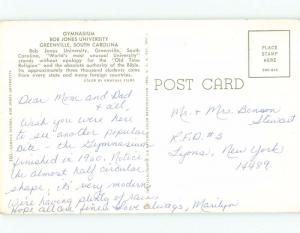 GYMNASIUM
BOB JONES UNIVERSITY
GREENVILLE, SOUTH CAROLINA
Bob Jones University, Greenville, South
Carolina, "World's most unusual University"
stands without apology for the "Old Time
Religion" and the absolute authority of the Bible.
Its approximately three thousand students come
from every state and many foreign countries.
PLACE
STAMP
HERE
POST CARD
Dear Mom and Dad
& all,
Wish you were here
to see another popular
site - the Gymnasium
finished in 1960. Notice
the almost half circular
shape; it's very modern.
We're having plenty of rain.
Hope all are fine. Love always, Marilyn
Mr. & Mrs. Benson
Stewart
R.F.D. #3
Lyons, New York
14489